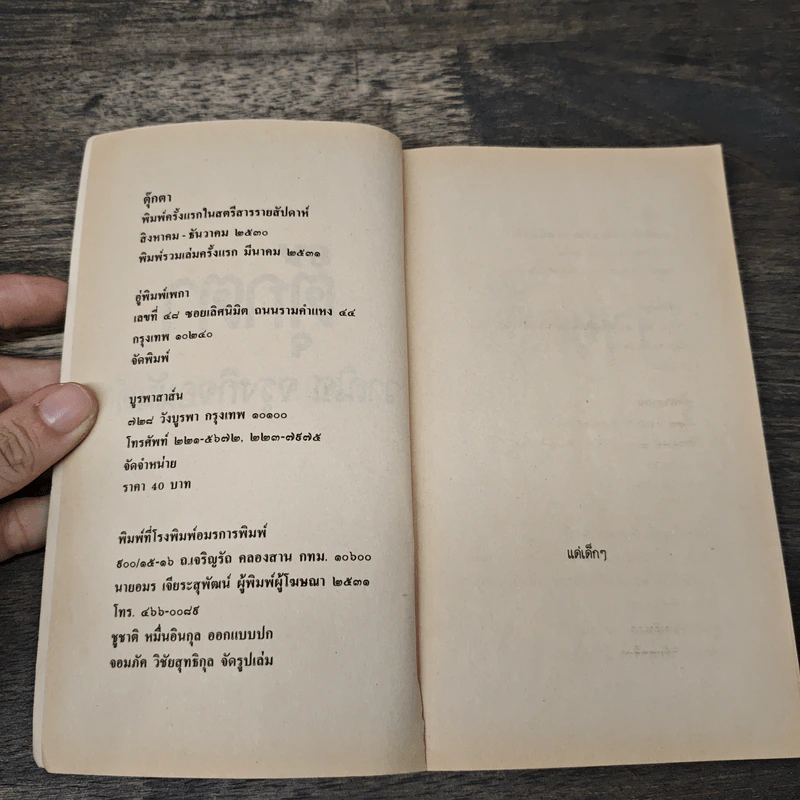 ตุ๊กตา
พิมพ์ครั้งแรกในสตรีสารรายสัปดาห์
สิงหาคม - ธันวาคม ๒๕๓๐
พิมพ์รวมเล่มครั้งแรก มีนาคม ๒๕๓๑
อู่พิมพ์เพกา
เลขที่ ๔๘ ซอยเลิศนิมิต ถนนรามคำแหง ๔๔
กรุงเทพ ๑๐๒๔๐
จัดพิมพ์
บูรพาสาส์น
๗๒๘ วังบูรพา กรุงเทพ ๑๐๑๐๐
โทรศัพท์ ๒๒๑-๕๖๗๒, ๒๒๓-๗๙๗๕
จัดจำหน่าย
ราคา 40 บาท
พิมพ์ที่โรงพิมพ์อมรการพิมพ์
๙๐๐/๑๕-๑๖ ถ.เจริญรัถ คลองสาน กทม. ๑๐๖๐๐
นายอมร เจียระสุพัฒน์ ผู้พิมพ์ผู้โฆษณา ๒๕๓๑
โทร. ๔๖๖-๐๐๘๙
ชูชาติ หมื่นอินกุล ออกแบบปก
จอมภัค วิชัยสุทธิกุล จัดรูปเล่ม
แด่เด็กๆ